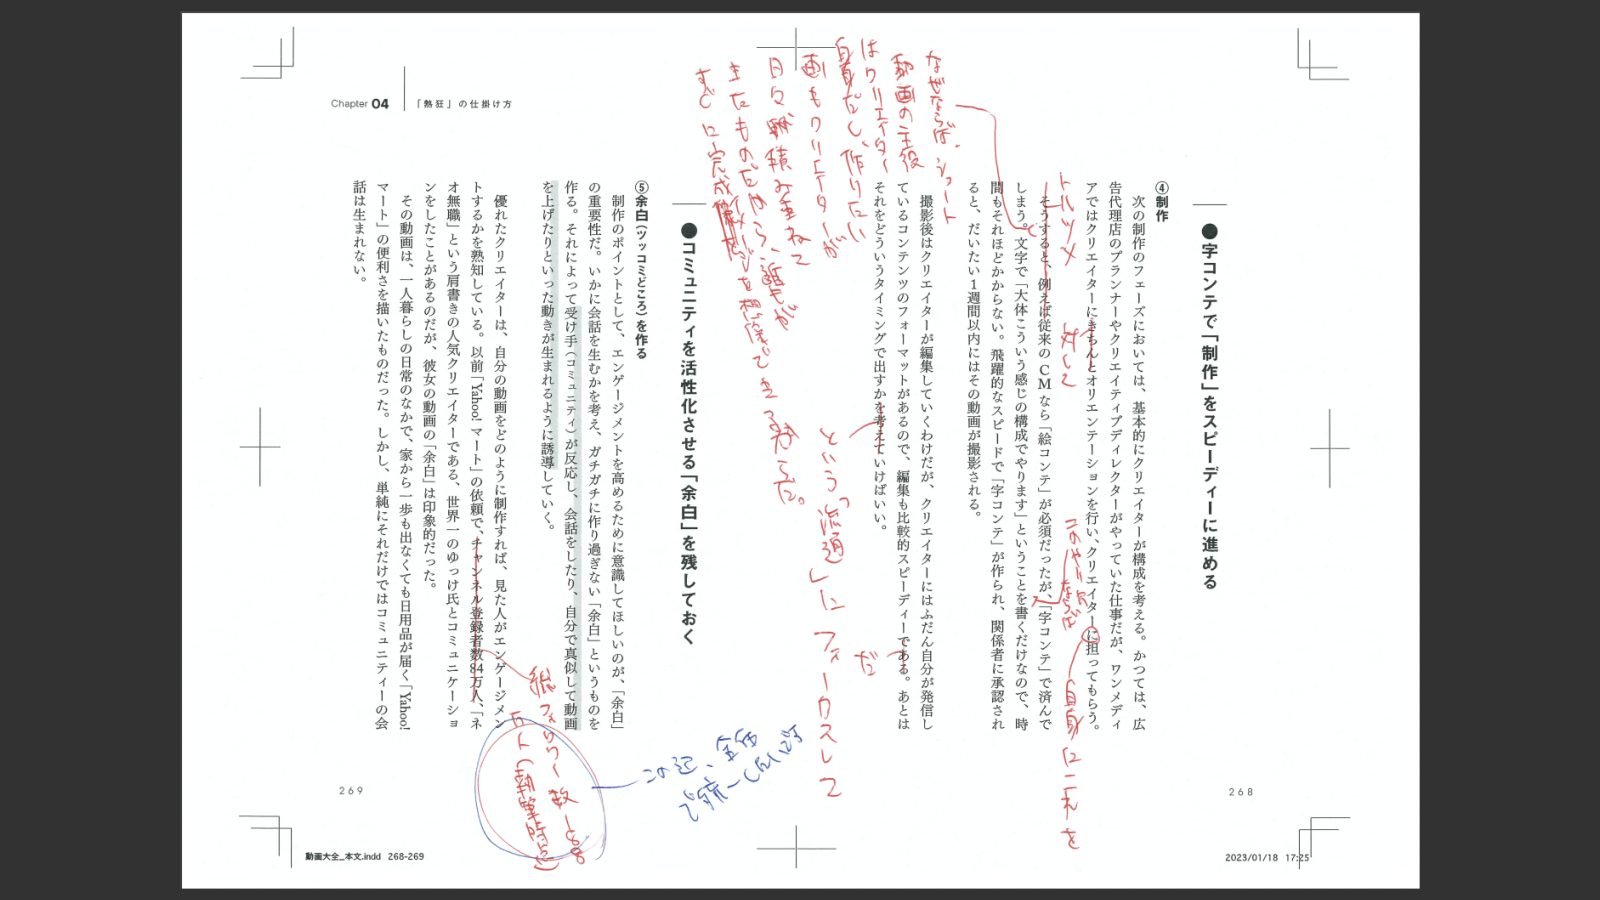 Chapter 04 「熱狂」の仕掛け方
●字コンテで「制作」をスピーディーに進める
④制作
次の制作のフェーズにおいては、基本的にクリエイターが構成を考える。かつては、広
告代理店のプランナーやクリエイティブディレクターがやっていた仕事だが、ワンメディ
アではクリエイターにきちんとオリエンテーションを行い、クリエイターに担ってもらう。
そうすると、例えば従来のCMなら「絵コンテ」が必須だったが、「字コンテ」で済んで
しまう。文字で「大体こういう感じの構成でやります」ということを書くだけなので、時
間もそれほどかからない。飛躍的なスピードで「字コンテ」が作られ、関係者に承認され
ると、だいたい1週間以内にはその動画が撮影される。
撮影後はクリエイターが編集していくわけだが、クリエイターにはふだん自分が発信し
ているコンテンツのフォーマットがあるので、編集も比較的スピーディーである。あとは
それをどういうタイミングで出すかを考えていけばいい。
トルツメ
対して
このやり方
ならば
自身にこれを
なぜならば、ショート
動画の主役
はクリエイター
自身だし、作りたい
画もクリエイターが
日々積み重ねて
きたものだから、誰もが
すぐに完成
イメージを想像できるからだ。
という
「流通」にフォーカスして
だ
●コミュニティを活性化させる「余白」を残しておく
⑤余白(ツッコミどころ)を作る
制作のポイントとして、エンゲージメントを高めるために意識してほしいのが、「余白」
の重要性だ。いかに会話を生むかを考え、ガチガチに作り過ぎない「余白」というものを
作る。それによって受け手(コミュニティ)が反応し、会話をしたり、自分で真似して動画
を上げたりといった動きが生まれるように誘導していく。
優れたクリエイターは、自分の動画をどのように制作すれば、見た人がエンゲージメン
トするかを熟知している。以前「Yahoo!マート」の依頼で、チャンネル登録者数84万人、「ネ
オ無職」という肩書きの人気クリエイターである、世界一のゆっけ氏とコミュニケーショ
ンをしたことがあるのだが、彼女の動画の「余白」は印象的だった。
その動画は、一人暮らしの日常のなかで、家から一歩も出なくても日用品が届く「Yahoo!
マート」の便利さを描いたものだった。しかし、単純にそれだけではコミュニティーの会
話は生まれない。
総フォロワー数
万人(執筆時点)
この辺、全体
で統一
269
268
動画大全_本文.indd 268-269
2023/01/18 17:25